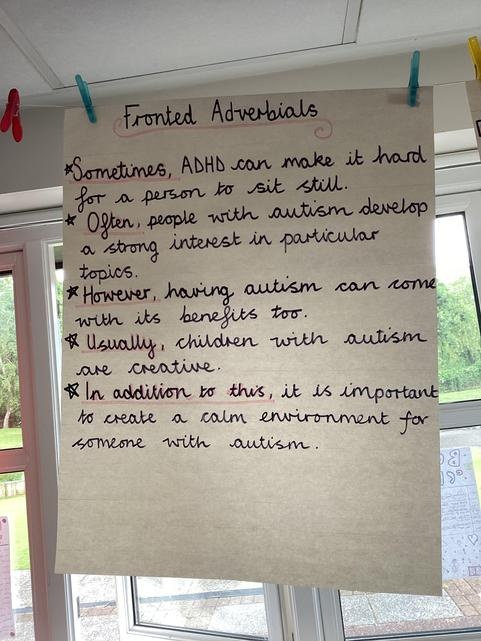 Fronted Adverbials
Sometimes, ADHD can make it hard
for a person to sit still.
Often, people with autism develop
a strong interest in particular
topics.
However, having autism can come
with its benefits too.
Usually, children with autism
are creative.
In addition to this, it is important
to create a calm environment for
someone with autism.